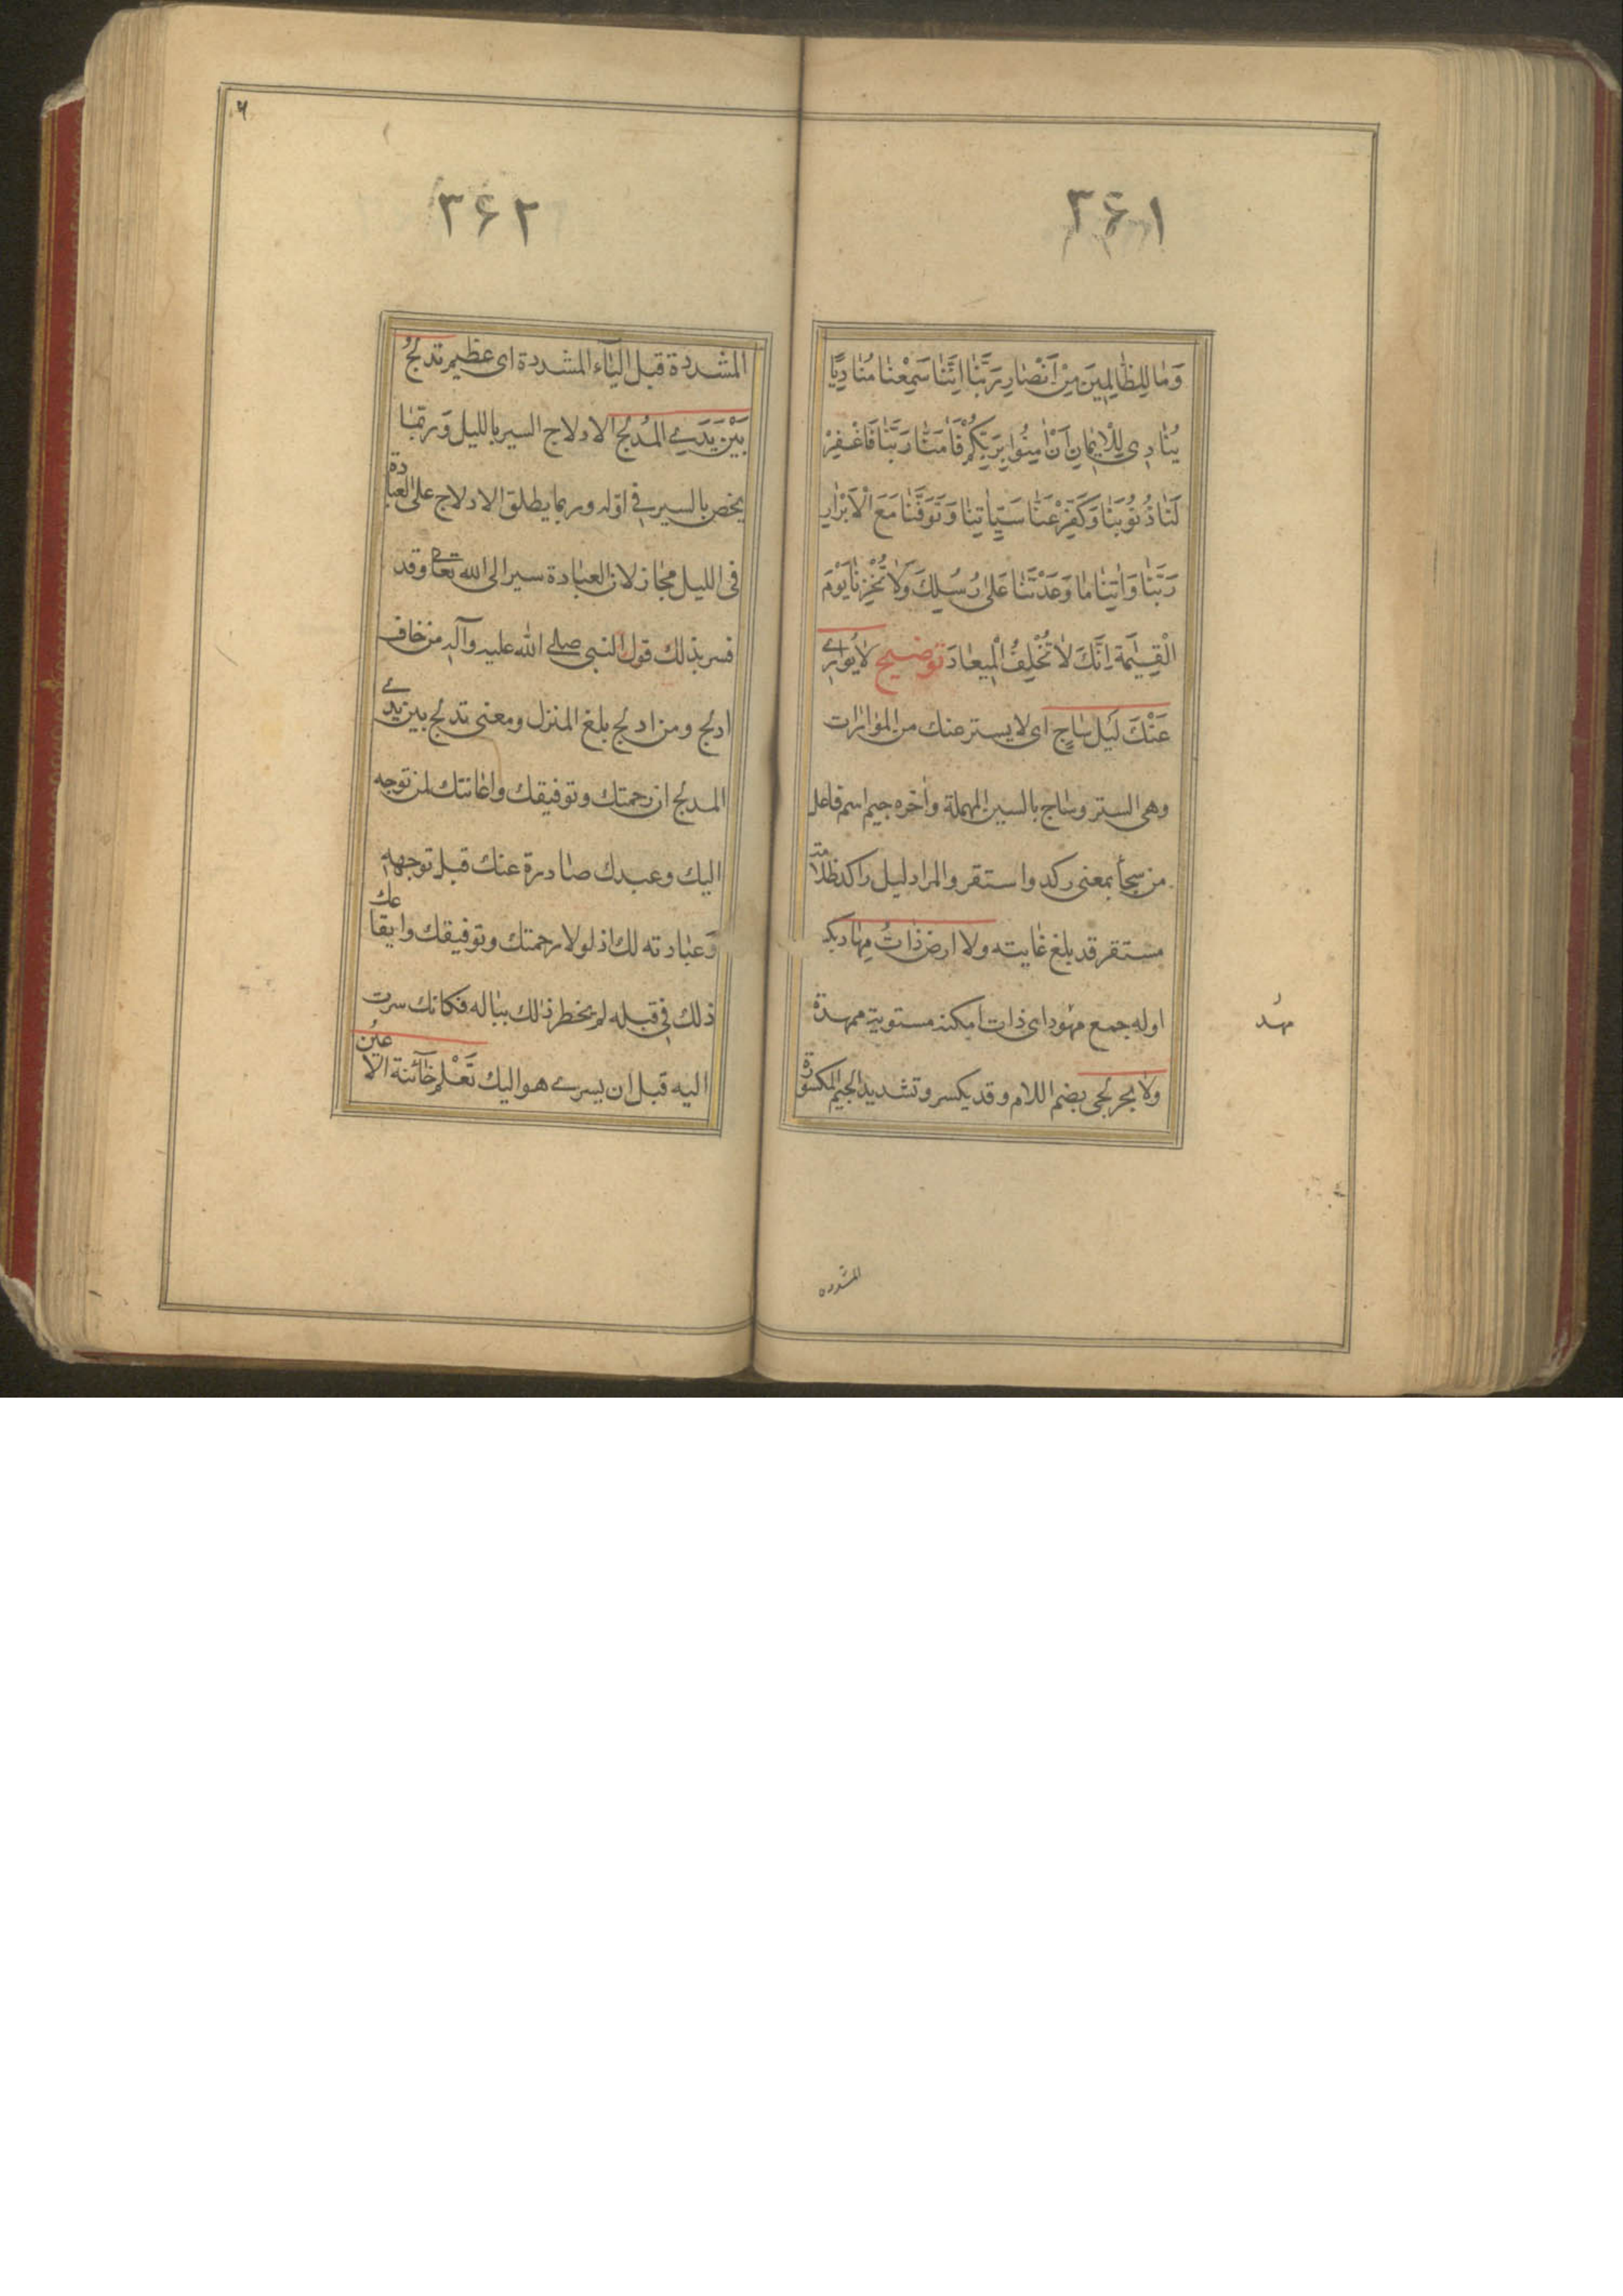 ۳۶۱
وَمٰا لِلظّٰالِمِينَ مِنْ اَنْصٰارٍ رَبَّنٰا اِنَّنٰا سَمِعْنٰا مُنٰادِيًا
يُنٰادِى لِلْاِيمٰانِ اَنْ اٰمِنُوا بِرَبِّكُمْ فَاٰمَنّٰا رَبَّنٰا فَاغْفِرْ
لَنٰا ذُنُوبَنٰا وَكَفِّرْ عَنّٰا سَيِّاٰتِنٰا وَتَوَفَّنٰا مَعَ الْاَبْرٰارِ
رَبَّنٰا وَاٰتِنٰا مٰا وَعَدْتَنٰا عَلٰى رُسُلِكَ وَلٰا تُخْزِنٰا يَوْمَ
الْقِيٰمَةِ اِنَّكَ لٰا تُخْلِفُ الْمِيعٰادَ توضيح لٰا يُوٰارِى
عَنْكَ لَيْل سٰاجٍ اى لا يستر عنك من الموٰارٰات
وهى الستر وسٰاج بالسين المهملة وآخره جيم اسم فاعل
من سجأ بمعنى ركد واستقر والمراد ليل راكد ظلامه
مستقر قد بلغ غٰايته ولا ارض ذٰاتُ مِهٰاد بكسر
اوله جمع مهُود اى ذات امكنة مستوية ممهدة
مهُد
ولا بحر لجى بضم اللام وقد يكسر وتشديد الجيم المكسورة
المشدده
۶
۳۶۲
المشددة قبل اليٰآء المشددة اى عظيم تدلجُ
بَيْنَ يَدَىِ المُدْلج الادلاج السير بالليل وَربمٰا
يخص بالسير فى اوله وربما يطلق الادلاج على العبادة
فى الليل مجٰاز لان العبٰادة سير الى الله تعٰالى وقد
فسر بذلك قول النبى صلى الله عليه وآله من خاف
ادلج ومن ادلج بلغ المنزل ومعنى تدلج بين يدى
المدلج ان رحمتك وتوفيقك واعٰانتك لمن توجه
اليك وعبدك صٰادرة عنك قبل توجهه
وَعبٰادته لك اذ لولا رحمتك وتوفيقك وايقاعك
ذلك فى قبله لم يخطر ذٰلك ببٰاله فكانك سرت
اليه قبل ان يسرى هو اليك تَعْلَم خٰآئنة الاعينُ